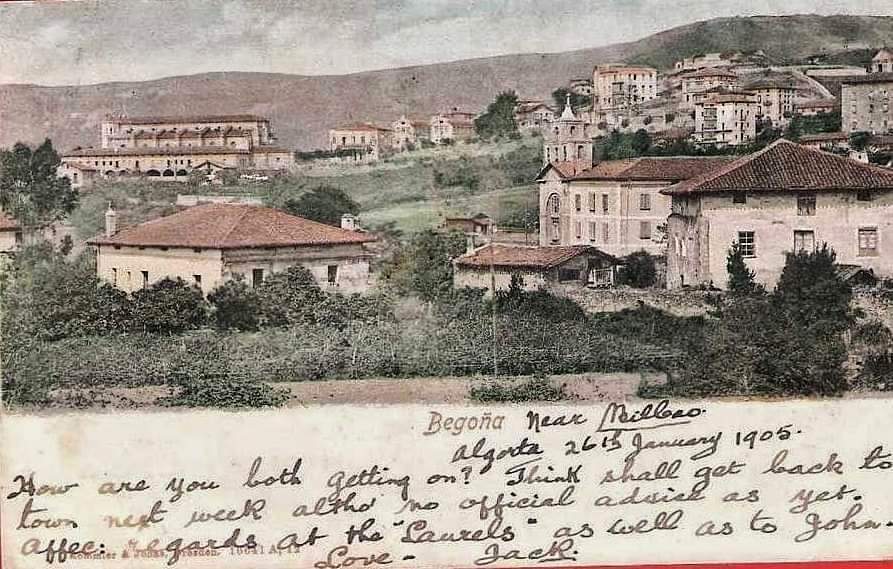 Begoña Near Bilbao.
Algorta 26th January 1905.
How are you both getting on? Think shall get back to
town next week altho' no official advice as yet.
Affec: regards at the "Laurels" as well as to John.
Love - Jack.
Römmler & Jonas, Dresden. 16641 A. 12